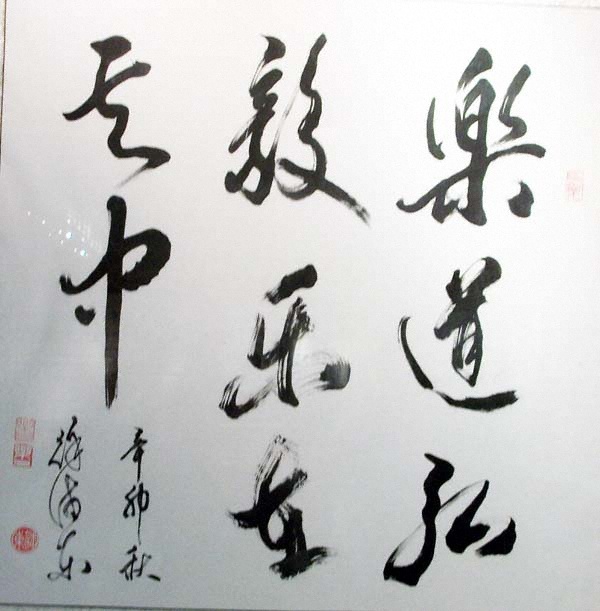 樂道弘
教乐在
其中
辛卯秋